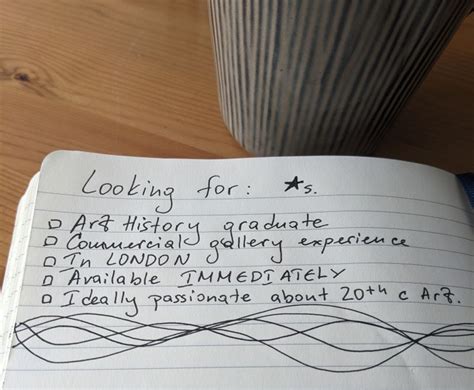 Looking for: ★s.
□ Art History graduate
□ Commercial gallery experience
□ In LONDON
□ Available IMMEDIATELY
□ Ideally passionate about 20th c Art.